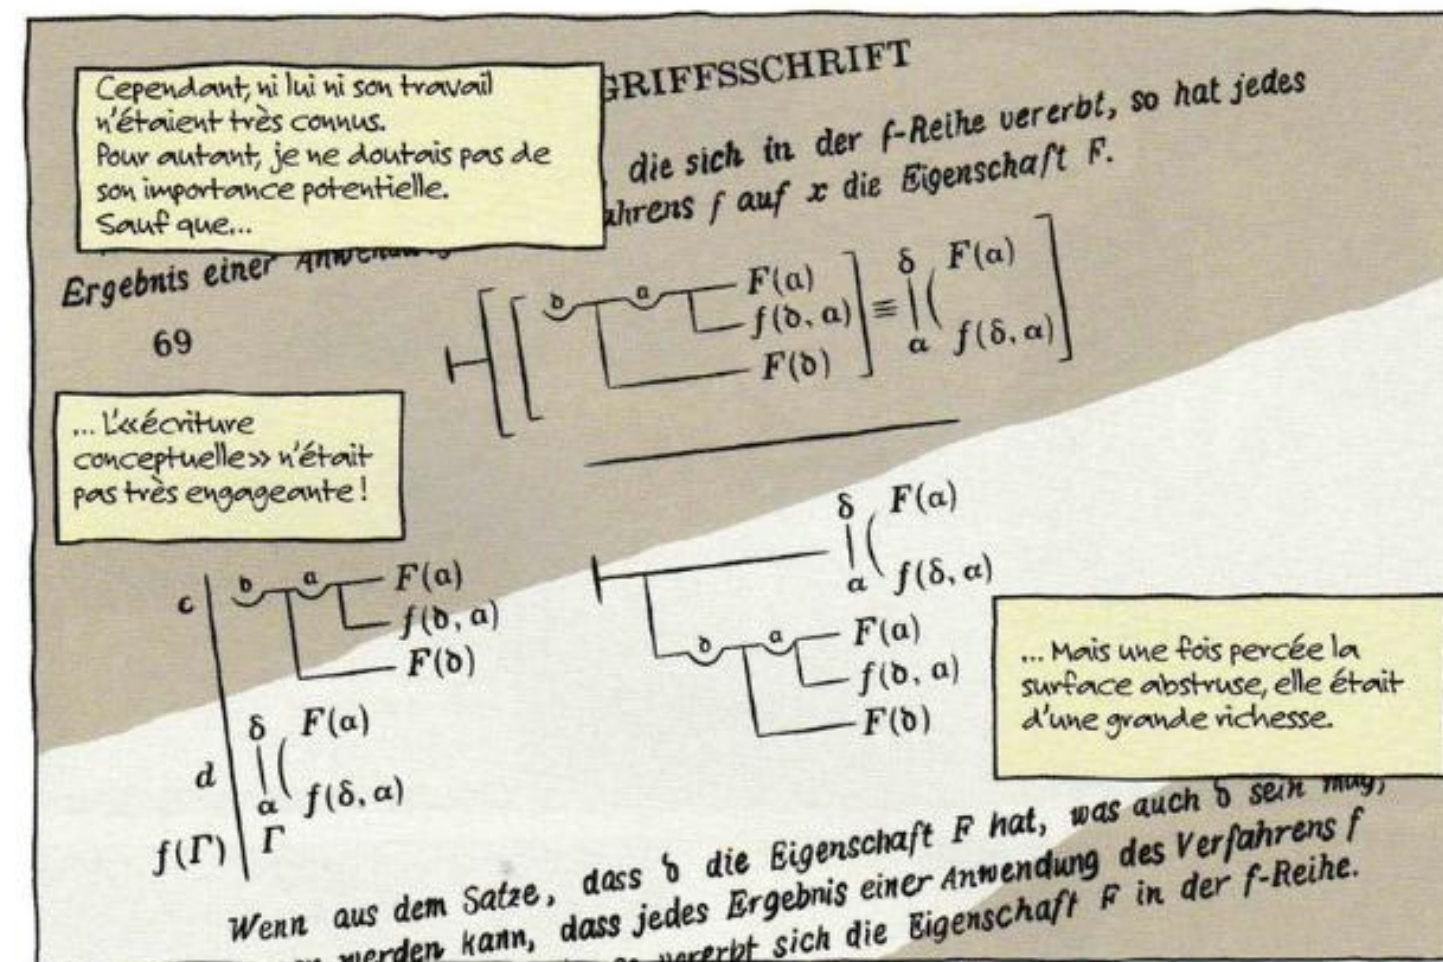 Cependant, ni lui ni son travail
n'étaient très connus.
Pour autant, je ne doutais pas de
son importance potentielle.
Sauf que...
GRIFFSSCHRIFT
die sich in der f-Reihe vererbt, so hat jedes
ahrens f auf x die Eigenschaft F.
Ergebnis einer Anwendung
69
𝔡 𝔞 F(𝔞)
f(𝔡, 𝔞)
F(𝔡)
≡
δ F(α)
α f(δ, α)
... L'«écriture
conceptuelle» n'était
pas très engageante !
c 𝔡 𝔞 F(𝔞)
f(𝔡, 𝔞)
F(𝔡)
d δ F(α)
α f(δ, α)
f(Γ) Γ
δ F(α)
α f(δ, α)
𝔡 𝔞 F(𝔞)
f(𝔡, 𝔞)
F(𝔡)
... Mais une fois percée la
surface abstruse, elle était
d'une grande richesse.
Wenn aus dem Satze, dass 𝔡 die Eigenschaft F hat, was auch 𝔡 sein mag,
werden kann, dass jedes Ergebnis einer Anwendung des Verfahrens f
vererbt sich die Eigenschaft F in der f-Reihe.